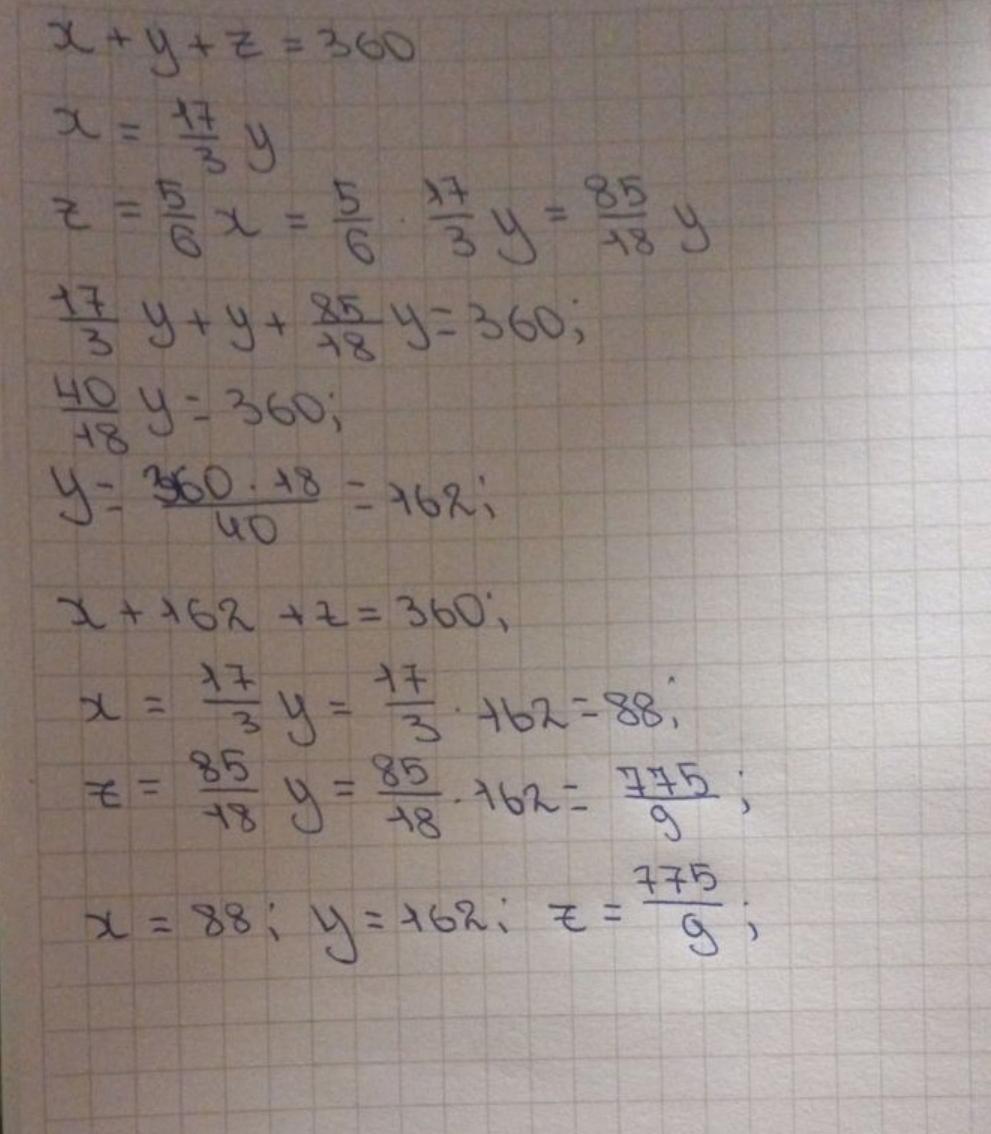 x + y + z = 360
x = 17/3 y
z = 5/6 x = 5/6 · 17/3 y = 85/18 y
17/3 y + y + 85/18 y = 360;
40/18 y = 360;
y = 360 · 18 / 40 = 162;
x + 162 + z = 360;
x = 17/3 y = 17/3 · 162 = 88;
z = 85/18 y = 85/18 · 162 = 775/9;
x = 88; y = 162; z = 775/9;